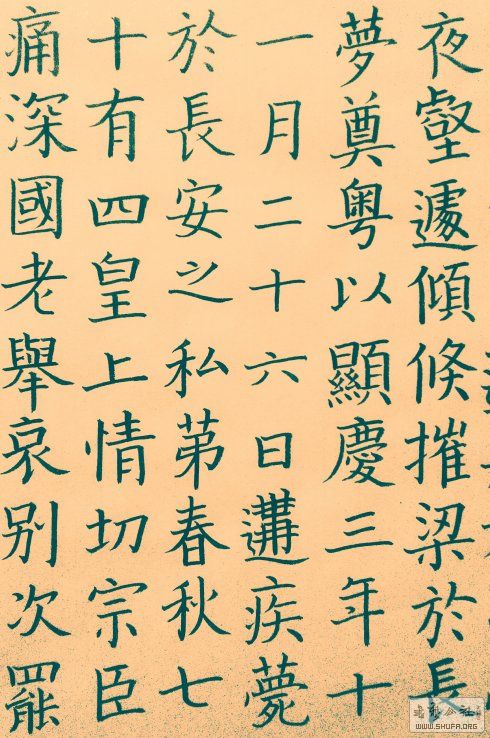 夜壑遽傾倐摧梁於長
夢奠粤以顯慶三年十
一月二十六日遘疾薨
於長安之私苐春秋七
十有四皇上情切宗臣
痛深國老舉哀别次罷
WWW.SHUFA.ORG